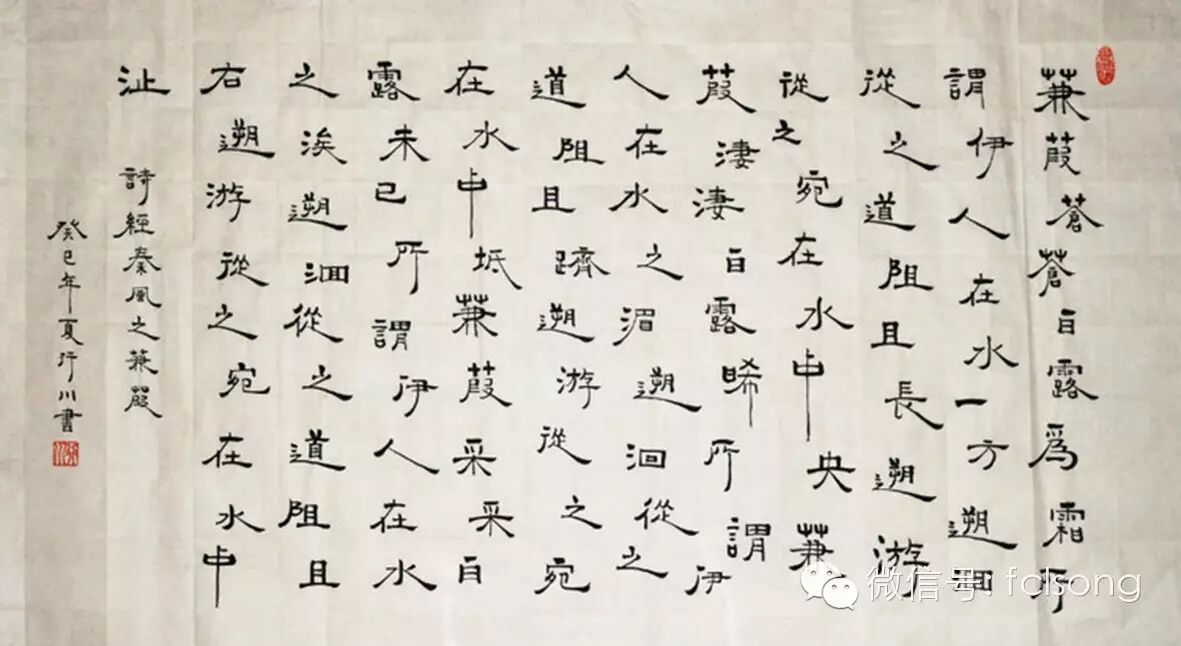 蒹葭蒼蒼白露爲霜所
謂伊人在水一方遡洄
從之道阻且長遡游
從之宛在水中央蒹
葭淒淒白露晞所謂伊
人在水之湄遡洄從之
道阻且躋遡游從之宛
在水中坻蒹葭采采白
露未已所謂伊人在水
之涘遡洄從之道阻且
右遡游從之宛在水中
沚
詩經秦風之蒹葭
癸巳年夏行川書
微信号: fclsong